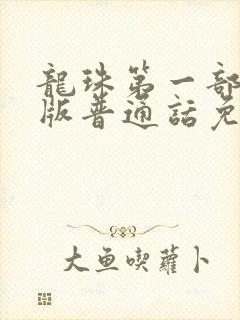 龍珠第一部
版普通話免
大魚喫蘿卜